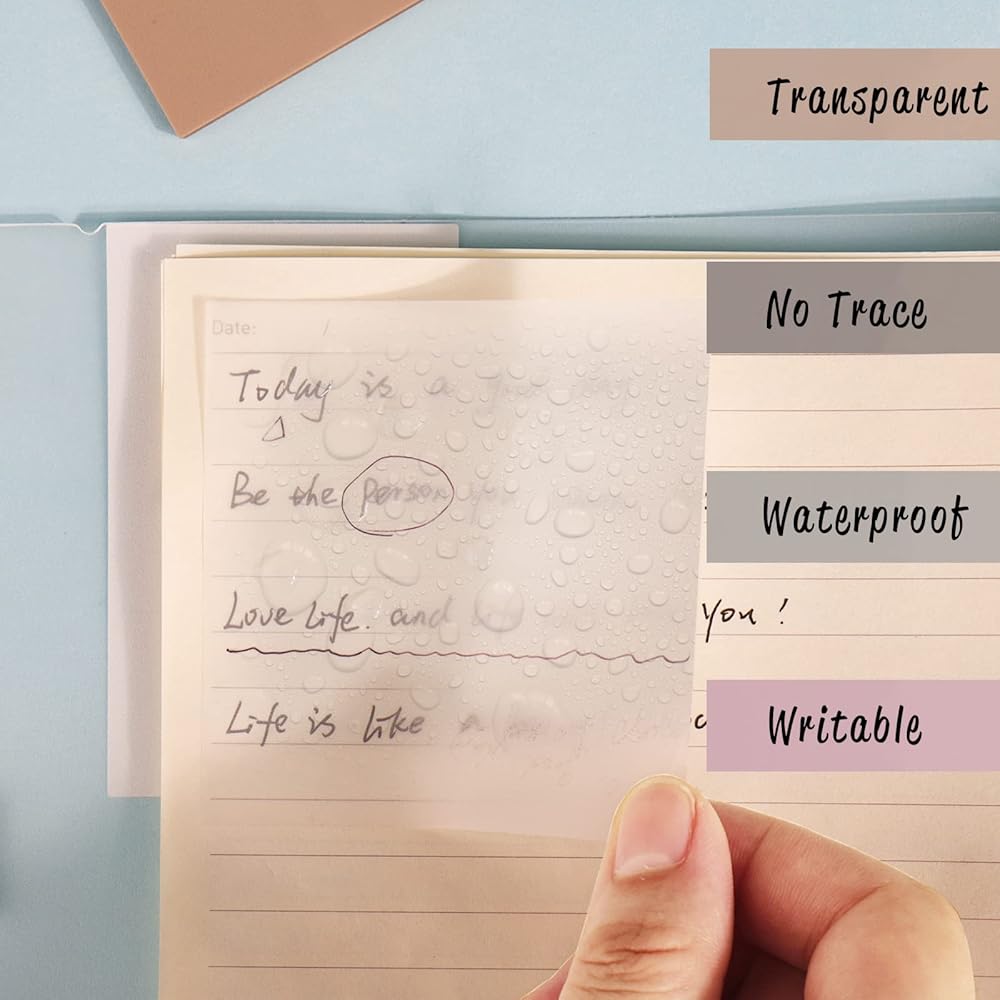 Transparent
No Trace
Waterproof
Writable
Date: /
Today is a
Be the person
Love Life. and
you!
Life is like a